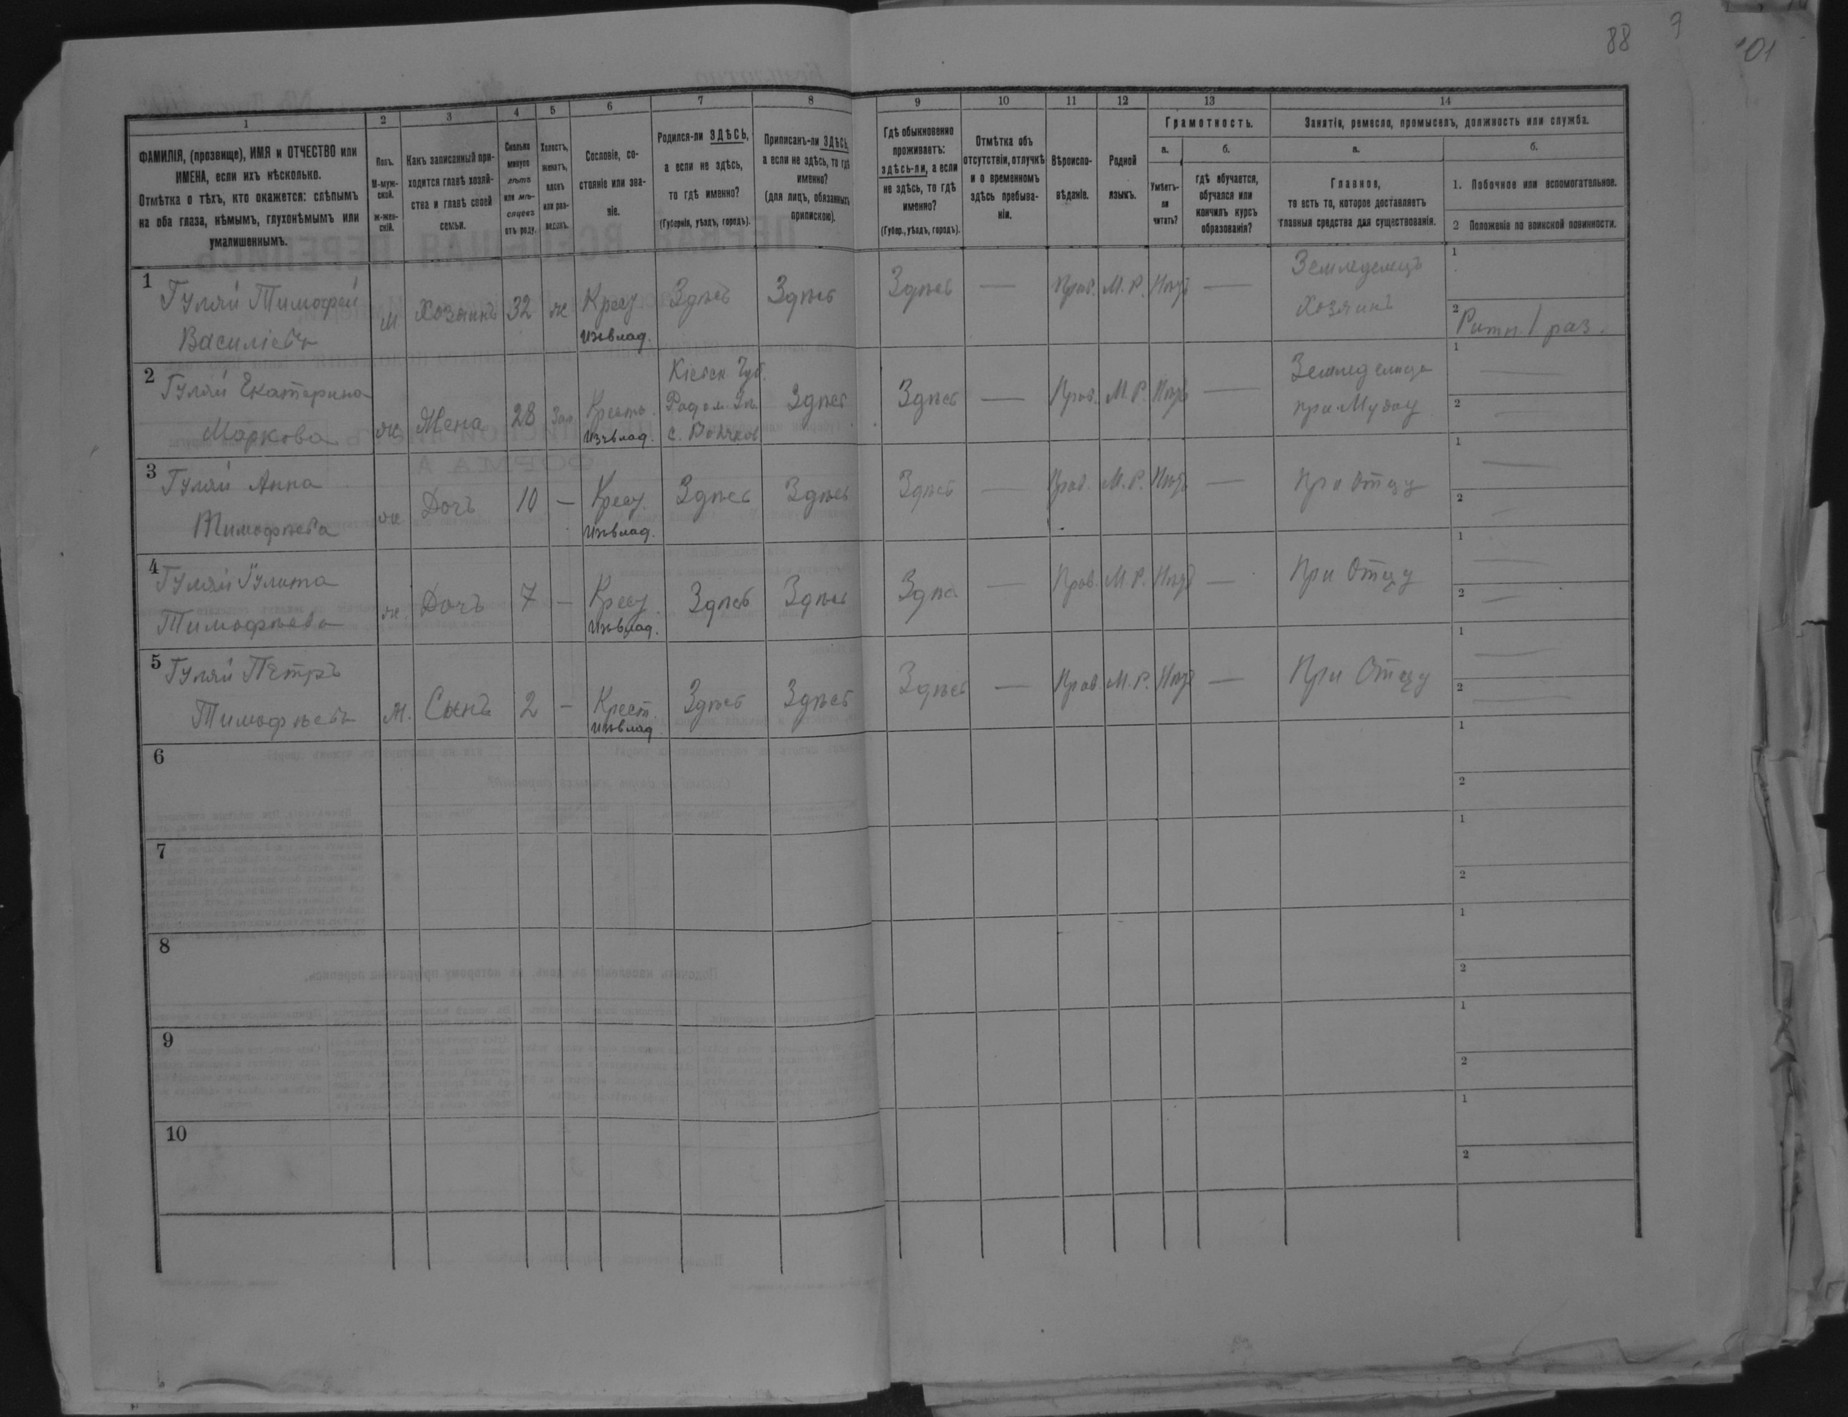 88
101
1
2
3
4
5
6
7
8
9
10
11
12
13
14
ФАМИЛІЯ, (прозвище), ИМЯ и ОТЧЕСТВО или
ИМЕНА, если ихъ нѣсколько.
Отмѣтка о тѣхъ, кто окажется: слѣпымъ
на оба глаза, нѣмымъ, глухонѣмымъ или
умалишеннымъ.
Полъ.
М-муж-
ской.
Ж-жен-
скій.
Какъ записанный при-
ходится главѣ хозяй-
ства и главѣ своей
семьи.
Сколько
минуло
лѣтъ
или мѣ-
сяцевъ
отъ роду.
Холостъ,
женатъ,
вдовъ
или раз-
веденъ.
Сословіе, со-
стояніе или зва-
ніе.
Родился-ли ЗДѢСЬ,
а если не здѣсь,
то гдѣ именно?
(Губернія, уѣздъ, городъ).
Приписанъ-ли ЗДѢСЬ,
а если не здѣсь, то гдѣ
именно?
(для лицъ, обязанныхъ
припискою).
Гдѣ обыкновенно
проживаетъ:
здѣсь-ли, а если
не здѣсь, то гдѣ
именно?
(Губер., уѣздъ, городъ).
Отмѣтка объ
отсутствіи, отлучкѣ
и о временномъ
здѣсь пребыва-
ніи.
Вѣроиспо-
вѣданіе.
Родной
языкъ.
Грамотность.
а.
Умѣетъ-
ли
читать?
б.
гдѣ обучается,
обучался или
кончилъ курсъ
образованія?
Занятіе, ремесло, промыселъ, должность или служба.
а.
Главное,
то есть то, которое доставляетъ
главныя средства для существованія.
б.
1. Побочное или вспомогательное.
2 Положеніе по воинской повинности.
1
Гуляй Тимофей
Василіевъ
м
Хозяинъ
32
ж
Крест.
изъвлад.
Здѣсь
Здѣсь
Здѣсь
—
Прав.
М. Р.
Нѣтъ
—
Земледелецъ
Хозяинъ
1
2
Ратн. 1 раз.
2
Гуляй Екатерина
Маркова
ж
Жена
28
Зам
Крестъ.
изъвлад.
Кіевск. Губ.
Радом. Уѣ.
Здѣсь
Здѣсь
—
Прав.
М. Р.
Нѣтъ
—
Земледелица
при Мужу
1
—
2
—
3
Гуляй Анна
Тимофѣева
ж
Дочъ
10
—
Крест.
изъвлад.
Здѣсь
Здѣсь
Здѣсь
—
Прав.
М. Р.
Нѣтъ
—
При Отцу
1
—
2
—
4
Гуляй Улита
Тимофѣева
ж.
Дочъ
7
—
Крест.
изъвлад.
Здѣсь
Здѣсь
Здѣсь
—
Прав.
М. Р.
Нѣтъ
—
При Отцу
1
—
2
—
5
Гуляй Петръ
Тимофѣевъ
м.
Сынъ
2
—
Крест.
изъвлад
Здѣсь
Здѣсь
Здѣсь
—
Прав.
М. Р.
Нѣтъ
—
При Отцу
1
—
2
—
6
1
2
7
1
2
8
1
2
9
1
2
10
1
2